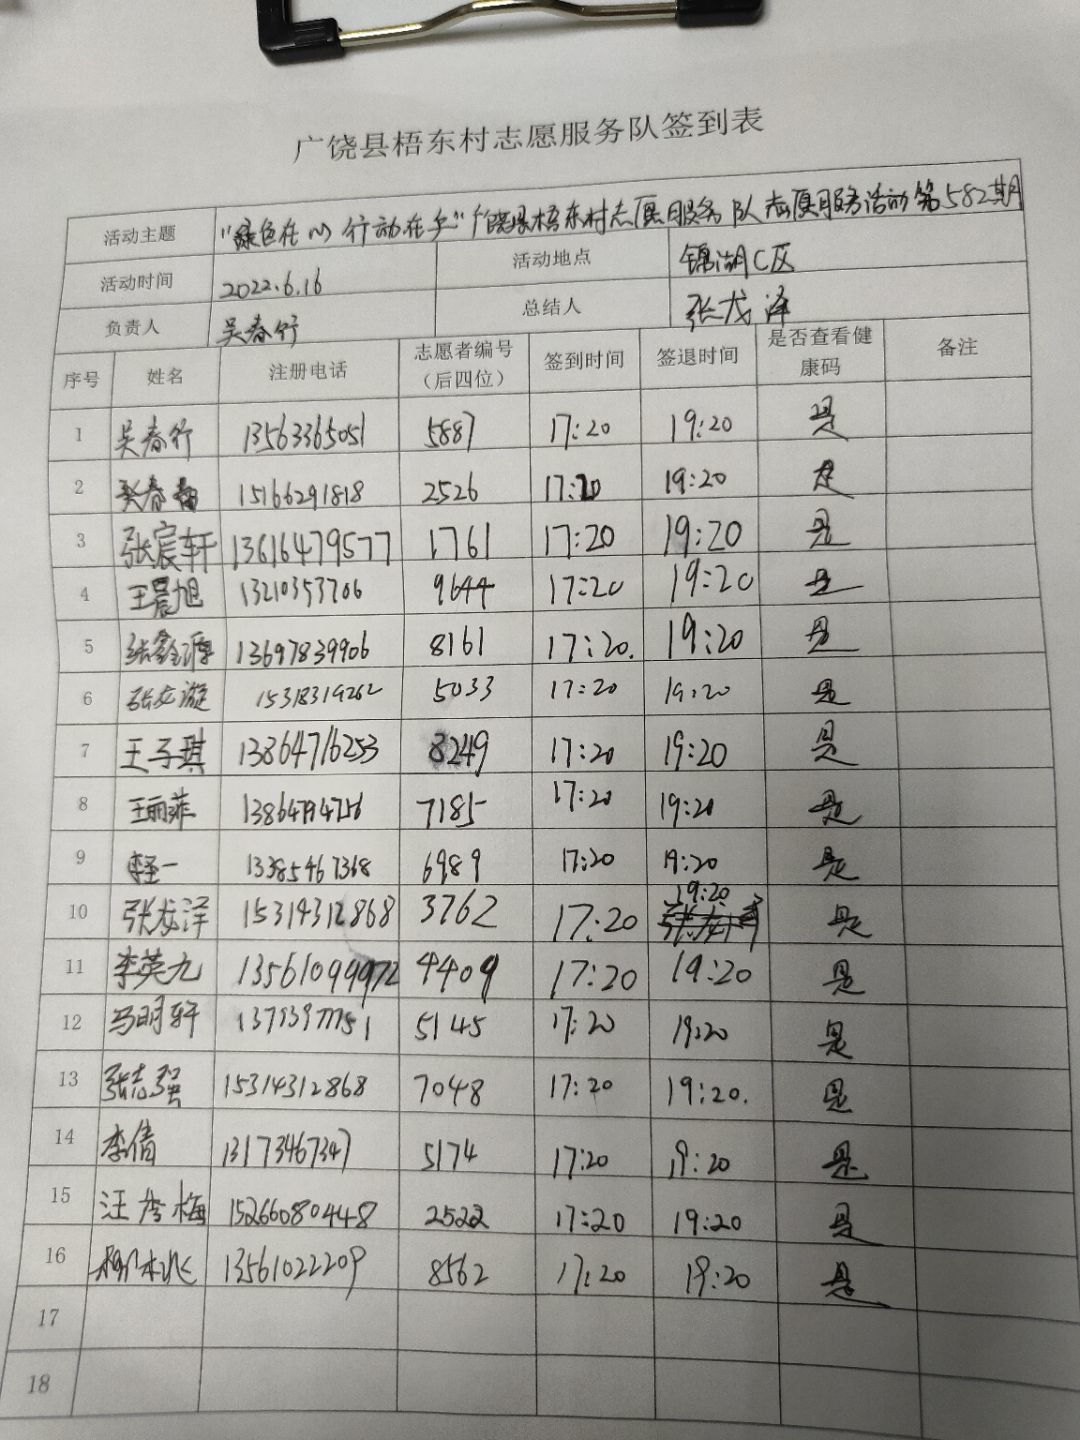 广饶县梧东村志愿服务队签到表
活动主题 "绿色在心 行动在手"广饶县梧东村志愿服务队志愿服务活动第582期
活动时间 2022.6.16 活动地点 锦湖C区
负责人 吴春行 总结人 张龙泽
序号 姓名 注册电话 志愿者编号（后四位） 签到时间 签退时间 是否查看健康码 备注
1 吴春行 13563365051 5887 17:20 19:20 是
2 吴春 15166291818 2526 17:20 19:20 是
3 张宸轩 13616479577 1761 17:20 19:20 是
4 王晨旭 13210353706 9644 17:20 19:20 是
5 张鑫源 13697839906 8161 17:20. 19:20 是
6 张龙漩 15318319262 5033 17:20 19:20 是
7 王子琪 13864716253 8249 17:20 19:20 是
8 王丽菲 7185 17:20 19:20 是
9 13385467368 6989 17:20 19:20 是
10 张龙泽 15314312868 3762 17:20 19:20 是
11 李英九 13561099972 4409 17:20 19:20 是
12 马明轩 5145 17:20 19:20 是
13 张志强 15314312868 7048 17:20 19:20. 是
14 李倩 13173467347 5174 17:20 19:20 是
15 汪秀梅 15266080448 2522 17:20 19:20 是
16 13561022209 8562 17:20 19:20 是
17
18